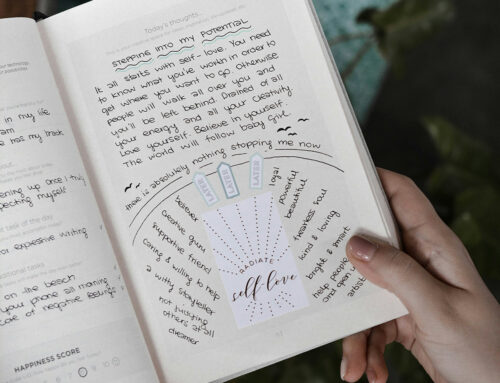 in my life
am
e has my back
ening up once I truly
pecting myself
t task of the day
or expressive writing
tional tasks
on the beach
your phone all morning
HAPPINESS SCORE
Today's thoughts...
STEPPING INTO MY POTENTIAL
It all starts with self-love. You need
to know what you're worth in order to
get where you want to go. Otherwise
people will walk all over you and
you'll be left behind. Drained of all
your energy and all your creativity
Love yourself. Believe in yourself.
The world will follow baby girl.
there is absolutely nothing stopping me now
believer
creative
supportive friend
caring & willing to help
a witty storyteller
not judging
others at all
dreamer
LATER
LATER
LATER
RADIATE
self love
loyal
powerful
beautiful
fearless soul
kind & loving
bright & smart
help people